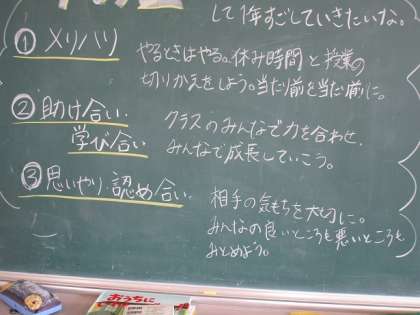 して1年すごしていきたいな。
①メリハリ
やるときはやる。休み時間と授業の
切りかえをしよう。当たり前を当たり前に。
②助け合い
学び合い
クラスのみんなで力を合わせ、
みんなで成長していこう。
③思いやり・認め合い
相手の気もちを大切に。
みんなの良いところも悪いところも
みとめよう。
おうちに